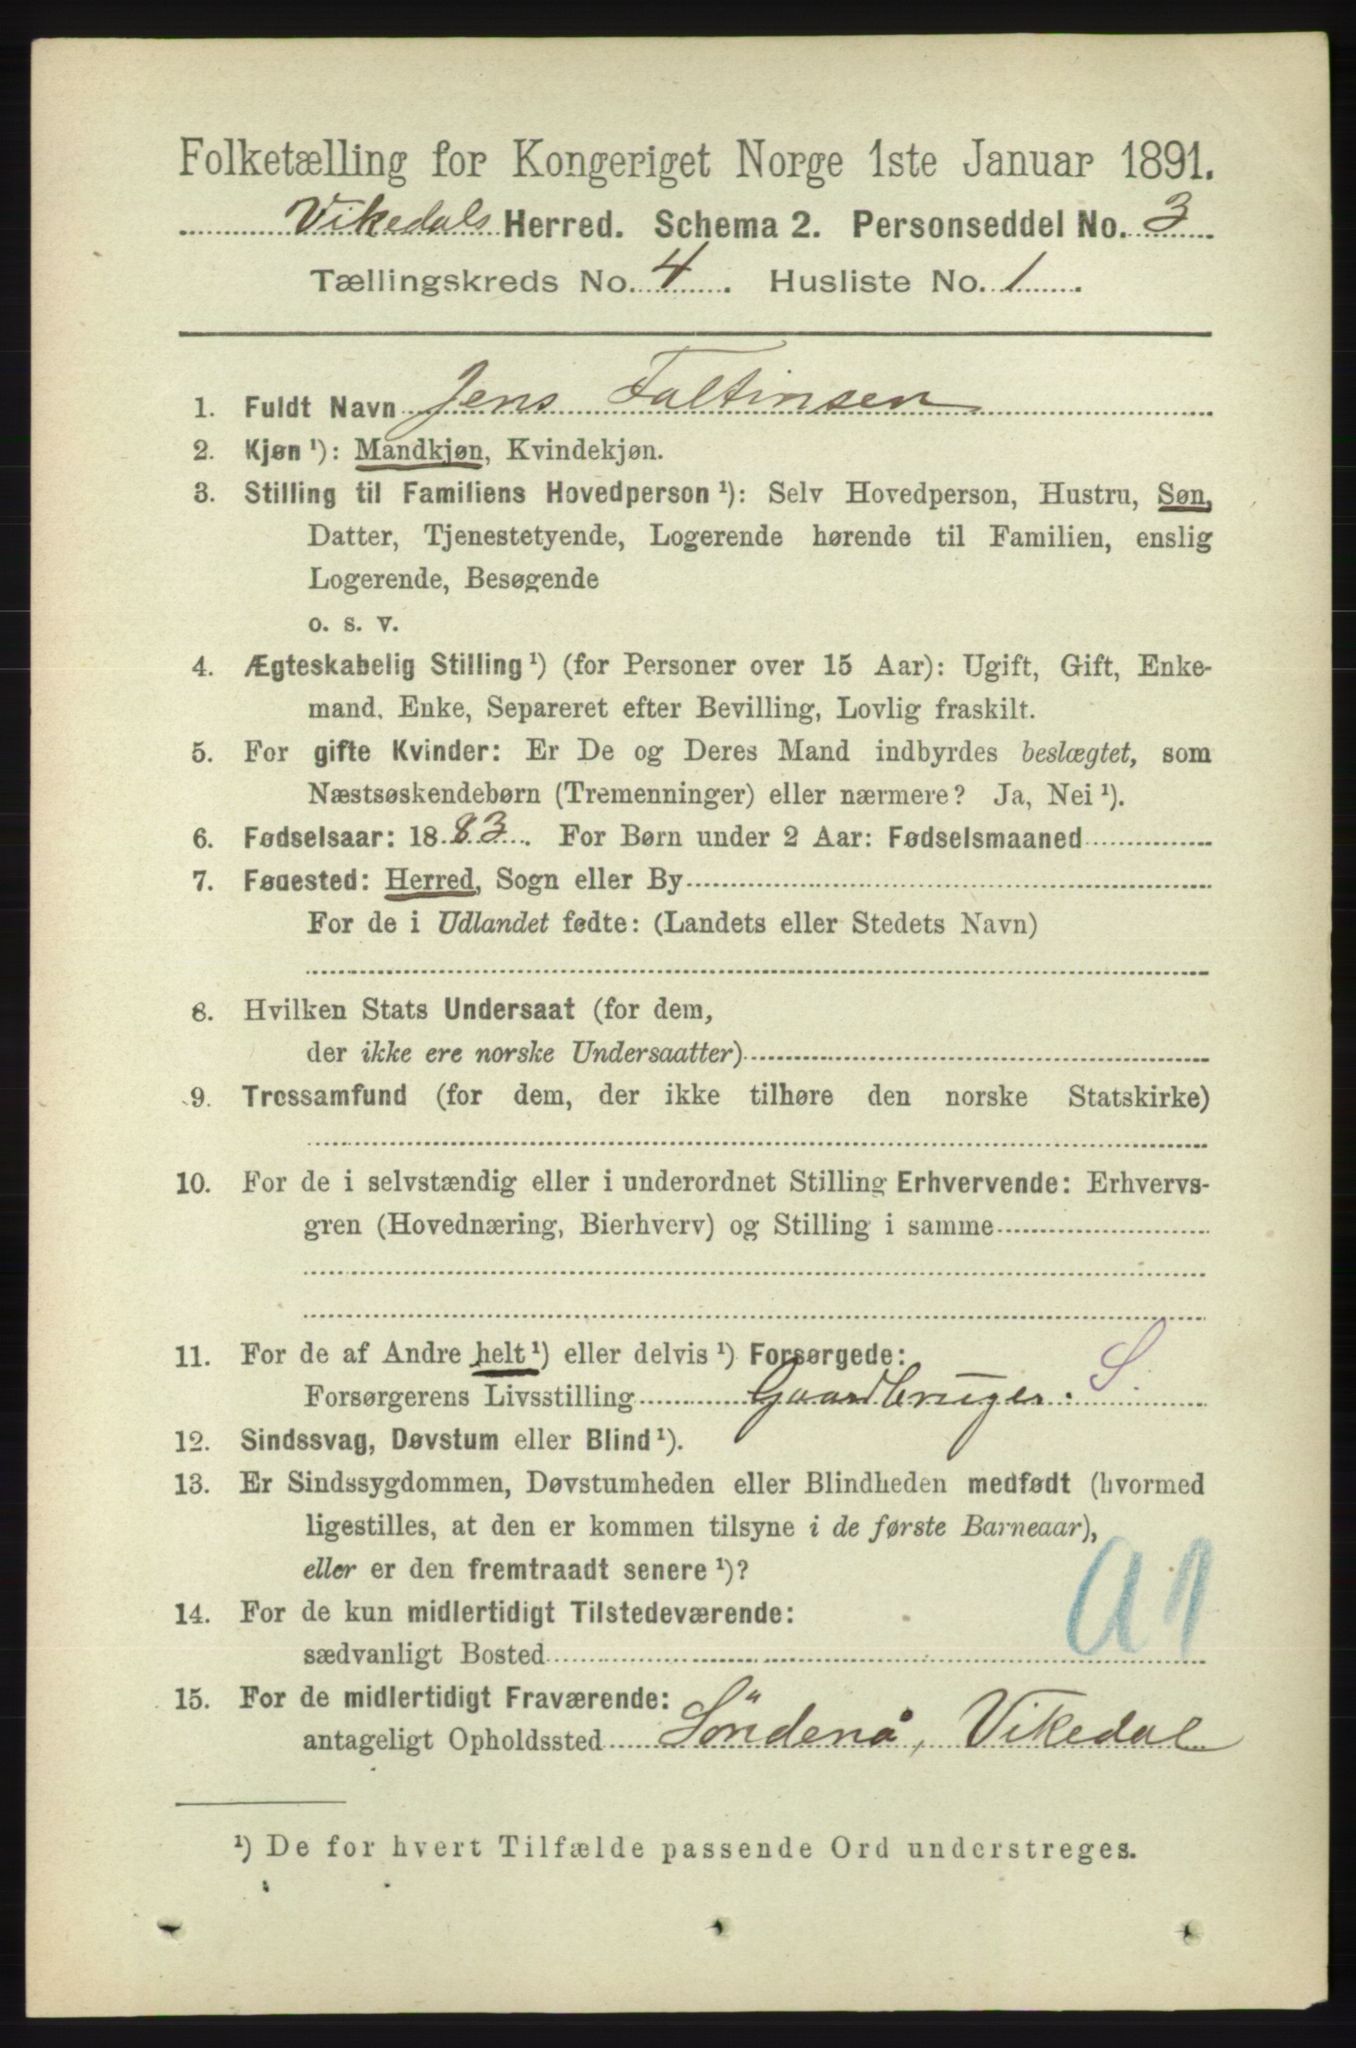 Folketælling for Kongeriget Norge 1ste Januar 1891.
Vikedals Herred. Schema 2. Personseddel No. 3
Tællingskreds No. 4. Husliste No. 1.
1. Fuldt Navn Jens Faltinsen
2. Kjøn¹): Mandkjøn, Kvindekjøn.
3. Stilling til Familiens Hovedperson¹): Selv Hovedperson, Hustru, Søn,
Datter, Tjenestetyende, Logerende hørende til Familien, enslig
Logerende, Besøgende
o. s. v.
4. Ægteskabelig Stilling¹) (for Personer over 15 Aar): Ugift, Gift, Enke-
mand, Enke, Separeret efter Bevilling, Lovlig fraskilt.
5. For gifte Kvinder: Er De og Deres Mand indbyrdes beslægtet, som
Næstsøskendebørn (Tremenninger) eller nærmere? Ja, Nei¹).
6. Fødselsaar: 1883. For Børn under 2 Aar: Fødselsmaaned
7. Fødested: Herred, Sogn eller By
For de i Udlandet fødte: (Landets eller Stedets Navn)
8. Hvilken Stats Undersaat (for dem,
der ikke ere norske Undersaatter)
9. Trossamfund (for dem, der ikke tilhøre den norske Statskirke)
10. For de i selvstændig eller i underordnet Stilling Erhvervende: Erhvervs-
gren (Hovednæring, Bierhverv) og Stilling i samme
11. For de af Andre helt¹) eller delvis¹) Forsørgede:
Forsørgerens Livsstilling Gaardbruger. S.
12. Sindssvag, Døvstum eller Blind¹).
13. Er Sindssygdommen, Døvstumheden eller Blindheden medfødt (hvormed
ligestilles, at den er kommen tilsyne i de første Barneaar),
eller er den fremtraadt senere¹)?
A1
14. For de kun midlertidigt Tilstedeværende:
sædvanligt Bosted
15. For de midlertidigt Fraværende:
antageligt Opholdssted Söndenå, Vikedal
¹) De for hvert Tilfælde passende Ord understreges.